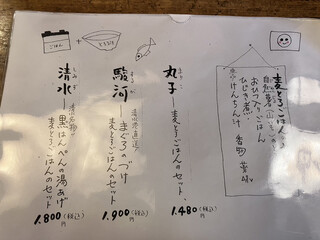 麦とろごはん
自然薯(山いも)
おひつごはん
ひじき煮
けんちん汁
香物
丸子
まりこ
麦とろごはんのセット
1.480(税込)円
駿河
するが
清水港直送
まぐろのづけ
麦とろごはんのセット
1.900(税込)円
清水
しみず
清水名物
黒はんぺんの湯あげ
麦とろごはんのセット
1.800(税込)円
ごはん
とろろ汁